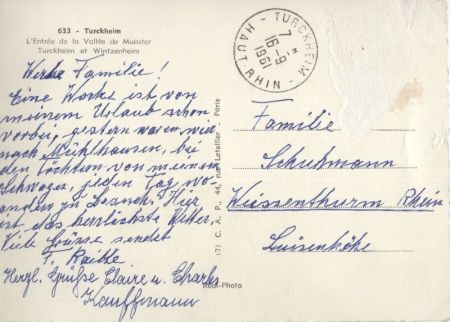 633 - Turckheim
L'Entrée de la Vallée de Munster
Turckheim et Wintzenheim
Werte Familie!
Eine Woche ist von
meinem Urlaub schon
vorbei, gestern waren wir
nach Mühlhausen, bei
den Töchtern von meinem
Schwager, jeden Tag wo-
anders zu Besuch. Hier
ist das herrlichste Wetter.
Viele Grüsse sendet
F.
Herzl. Grüße Claire u. Charles
Kauffmann
(7) C. A. P., 44, rue Letellier - Paris
Real-Photo
TURCKHEIM - HAUT-RHIN
7 H
16-9
Familie
Schuhmann
Weissenthurm Rhein
Luisenhöhe